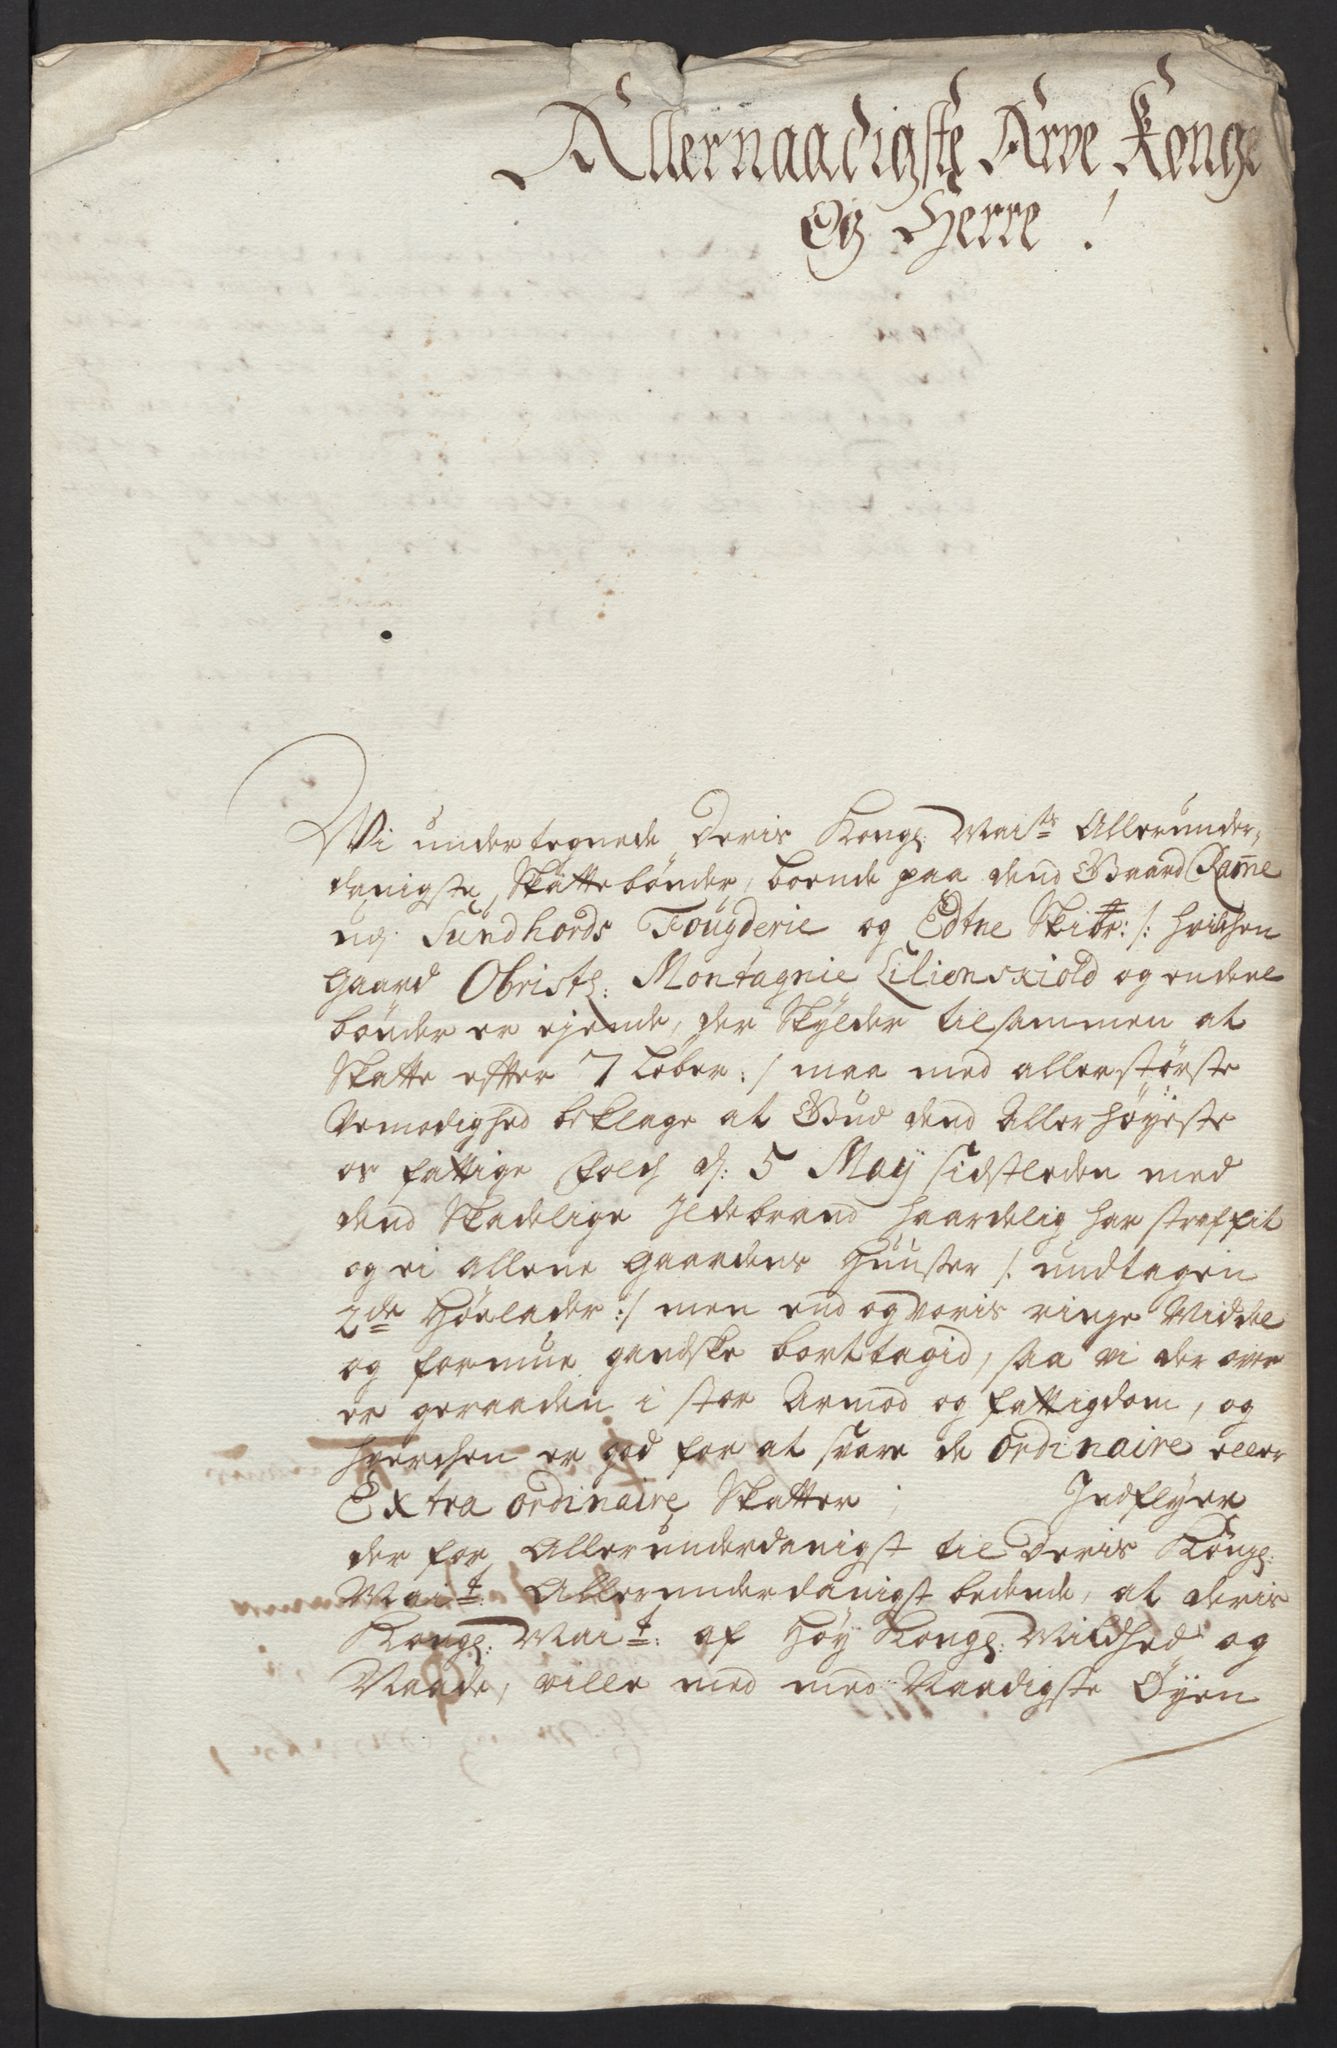 Allernaadigste Arve Konge
Og Herre !
Wi under tegnede Deris Kongl: Maits Allerunder,
danigste Skattebønder, boende paa dend Gaard Rame
ud. Sundhords Fougderie og Edtne Skibr: /: hvilchen
gaard Obristl: Montagnie Lilienskiold og endeel
bønder er ejende, der Skylder tilsammen at
Skatte efter 7 Løber :/ maa med allerstørste
Vemodighed beklage at Gud dend Allerhøyeste
os fattige Folch d: 5 Maij sidstleden med
dend Skadelige Ildebrand haardelig har straffit
og ei allene Gaardens Huuser /: undtagen
2de Høelader :/ men end og voris ringe Middel
og formue gandske borttagid, saa vi der over
er geraaden i stor Armod og fattigdom, og
hverchen er god for at svare de ordinaire eller
Extra ordinaire Skatter; Indflyer
der for Allerunderdanigst til Deris Kongl:
Mait: Allerunderdanigst bedende, at deris
Kongl: Mait: af Høy Kongl: Mildhed og
Naade, ville med med Naadigste Øyen